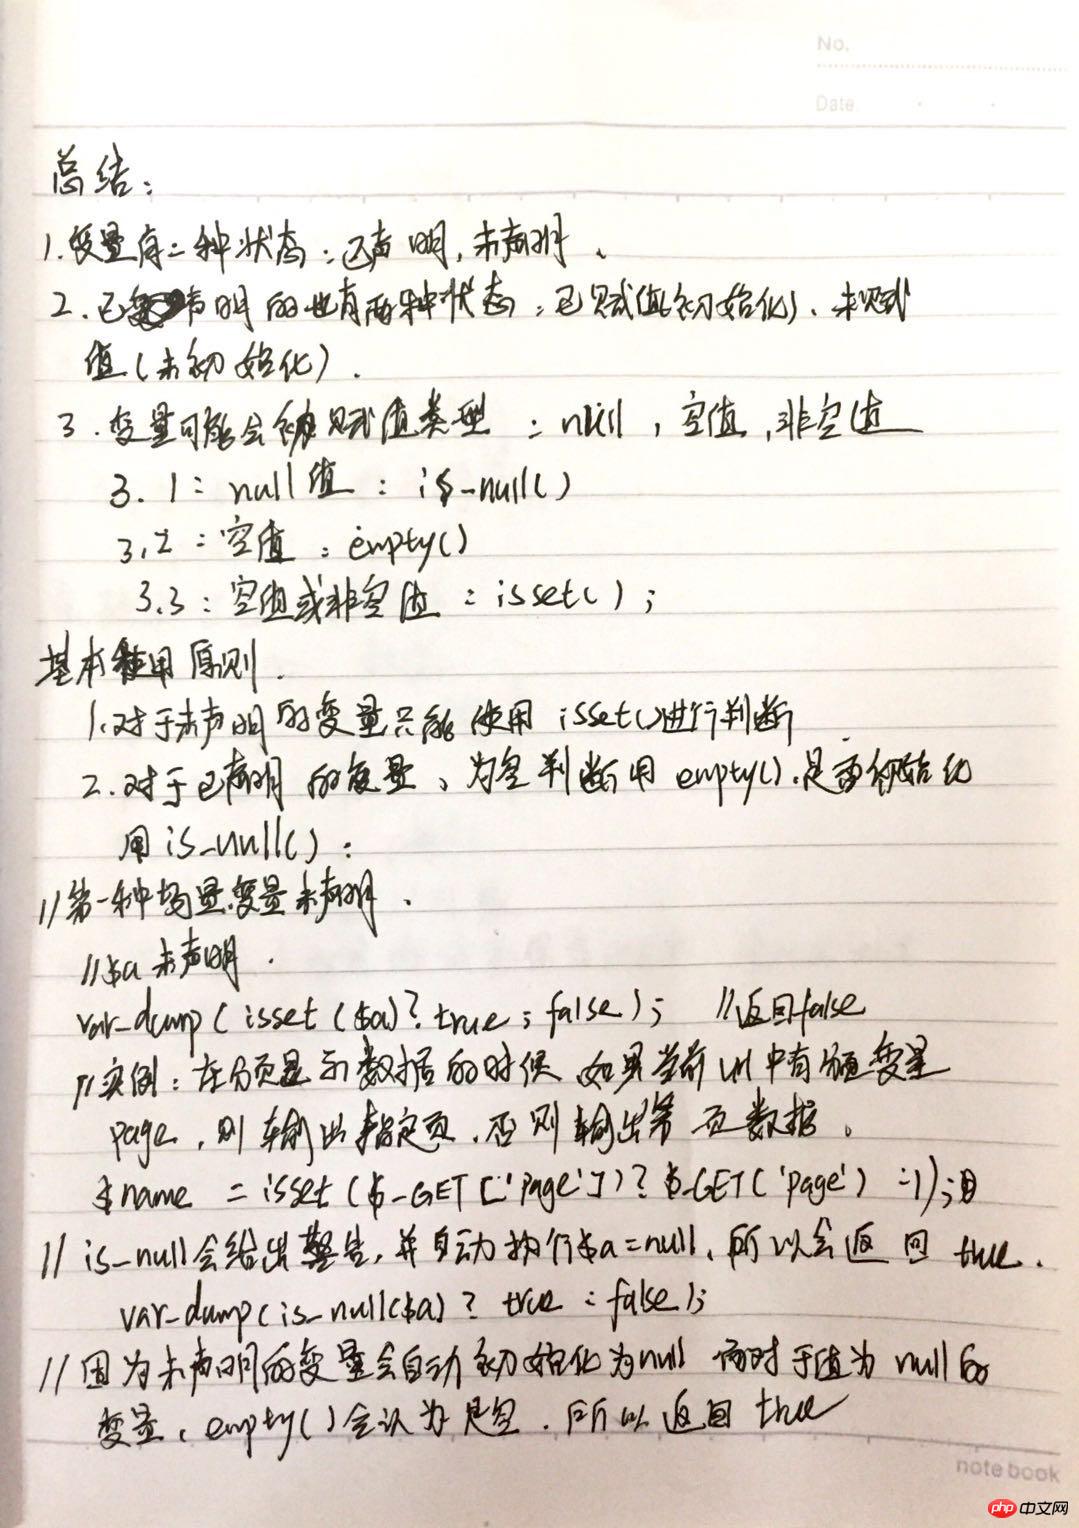 No.
Date
总结：
1.变量有二种状态：已声明，未声明、
2.已声明的也有两种状态：已赋值(初始化)、未赋
值(未初始化).
3.变量可能会被赋值类型：null，空值，非空值
3.1：null值：is_null()
3.2：空值：empty()
3.3：空值或非空值：isset()；
基本使用原则.
1.对于未声明的变量只能使用isset()进行判断
2.对于已声明的变量、为空判断用empty().是否初始化
用is_null()：
//第一种场景变量未声明.
//$a未声明.
var_dump(isset($a)?true:false); //返回false
//实例：在分页显示数据的时候 如果当前url中有 变量
page，则输出指定页.否则输出第一页数据。
$name = isset($_GET['page'])?$_GET('page') :1);
//is_null会给出警告,并自动执行$a=null,所以会返回true.
var_dump(is_null($a)?true:false);
//因为未声明的变量会自动初始化为null 而对于值为null的
变量，empty()会认为是空.所以返回true
note book
php中文网